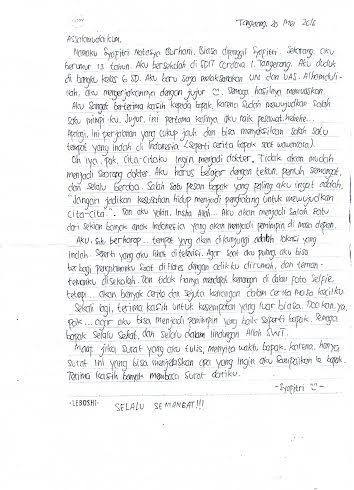 Tangerang, 20 Mei 2016
Assalamualaikum.
Namaku Syafitri Natasya Burhani. Biasa dipanggil Syafitri. Sekarang aku
berumur 13 tahun. Aku bersekolah di SDIT Cordova 1, Tangerang. Aku duduk
di bangku kelas 6 SD. Aku baru saja melaksanakan UN dan UAS. Alhamduli-
llah, aku mengerjakannya dengan jujur ☺. Semoga hasilnya memuaskan.
Aku sangat berterima kasih kepada bapak, karena sudah mewujudkan salah
satu mimpi ku. Jujur, ini pertama kalinya, aku naik pesawat. hehehe...
Apalagi, ini perjalanan yang cukup jauh dan bisa menyaksikan salah satu
tempat yang indah di Indonesia. (Seperti cerita bapak saat wawancara).
Oh iya, pak. Cita-citaku ingin menjadi dokter. Tidak akan mudah
menjadi seorang dokter. Aku harus belajar dengan tekun, penuh semangat,
dan selalu berdoa. Salah satu pesan bapak yang paling aku ingat adalah,
"Jangan jadikan kesusahan hidup menjadi penghalang untuk mewujudkan
cita-cita". Dan aku yakin, Insha Allah... Aku akan menjadi salah satu
dari sekian banyak anak Indonesia yang akan menjadi pemimpin di masa depan.
Aku, sih berharap... tempat yang akan dikunjungi adalah lokasi yang
indah. Seperti yang aku lihat di televisi. Agar saat aku pulang, aku bisa
berbagi pengalamanku saat di Flores dengan adikku di rumah, dan teman-
temanku di sekolah. Dan tidak hanya mendapat kenangan di dalam foto selfie,
tetapi... akan banyak cerita dan sejuta kenangan dalam cerita nyata kecilku.
Sekali lagi, terima kasih untuk kesempatan yang luar biasa. Doakan, ya,
pak... agar aku bisa menjadi pemimpin yang baik seperti bapak. Semoga
bapak selalu sehat, dan selalu dalam lindungan Allah SWT.
Maaf, jika surat yang aku tulis, menyita waktu bapak. karena, hanya
surat ini yang bisa menjelaskan apa yang ingin aku sampaikan ke bapak.
Terima kasih banyak membaca surat dariku.
-Syafitri ☺-
-LEBOSHI-
SELALU SEMANGAT!!!